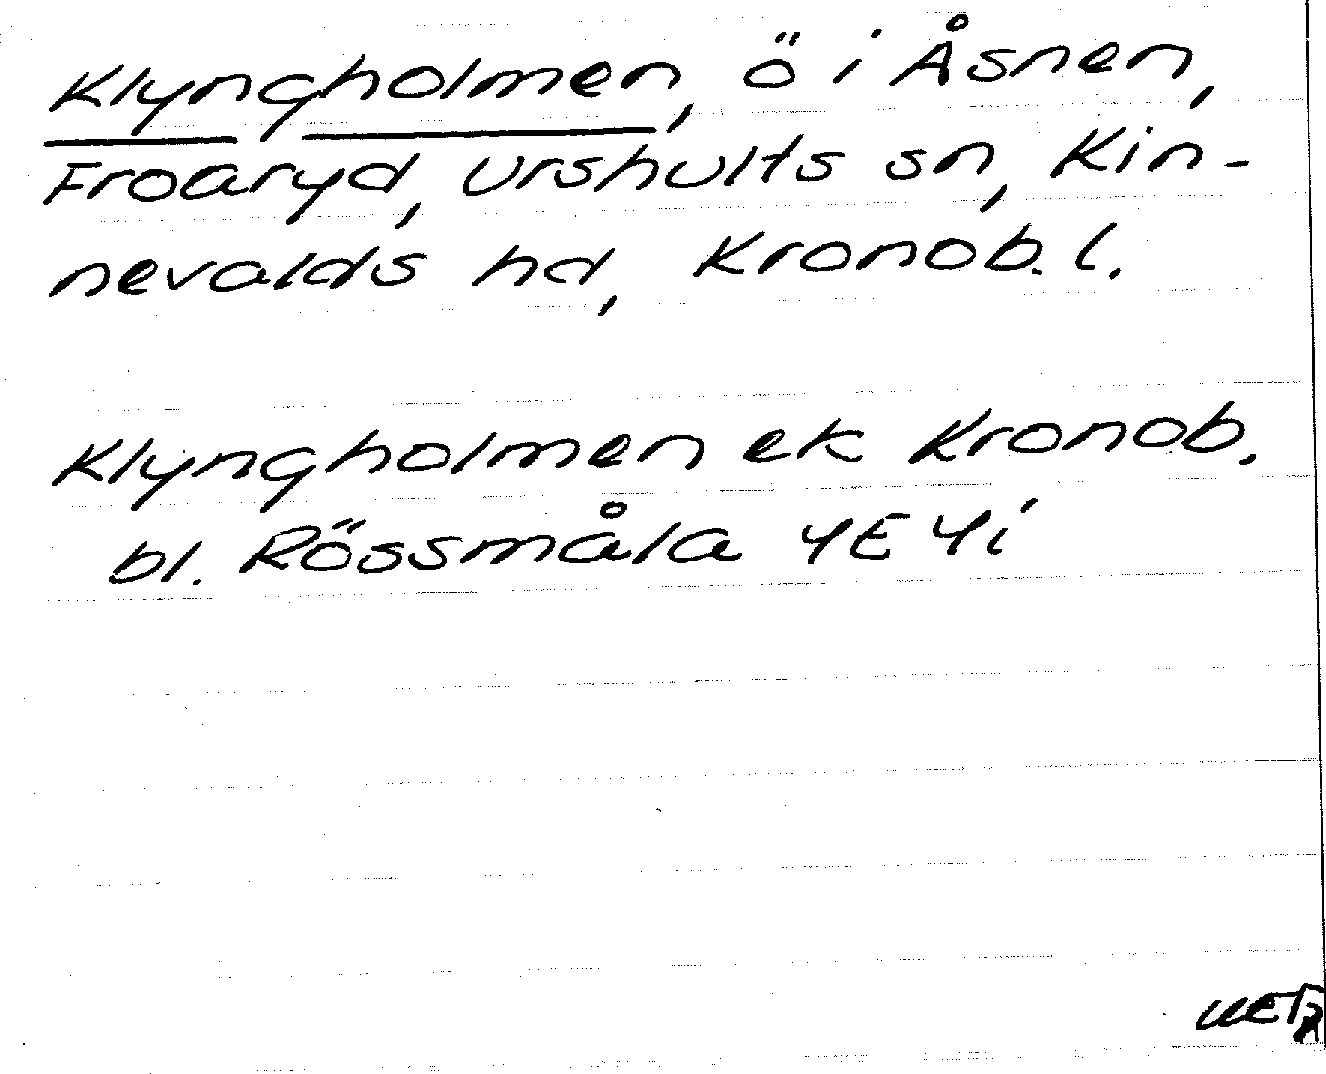 Klyngholmen, ö i Åsnen,
Froaryd, Urshults sn, Kin-
nevalds hd, Kronob. l.
Klyngholmen ek Kronob.
bl. Rössmåla 4E 4i